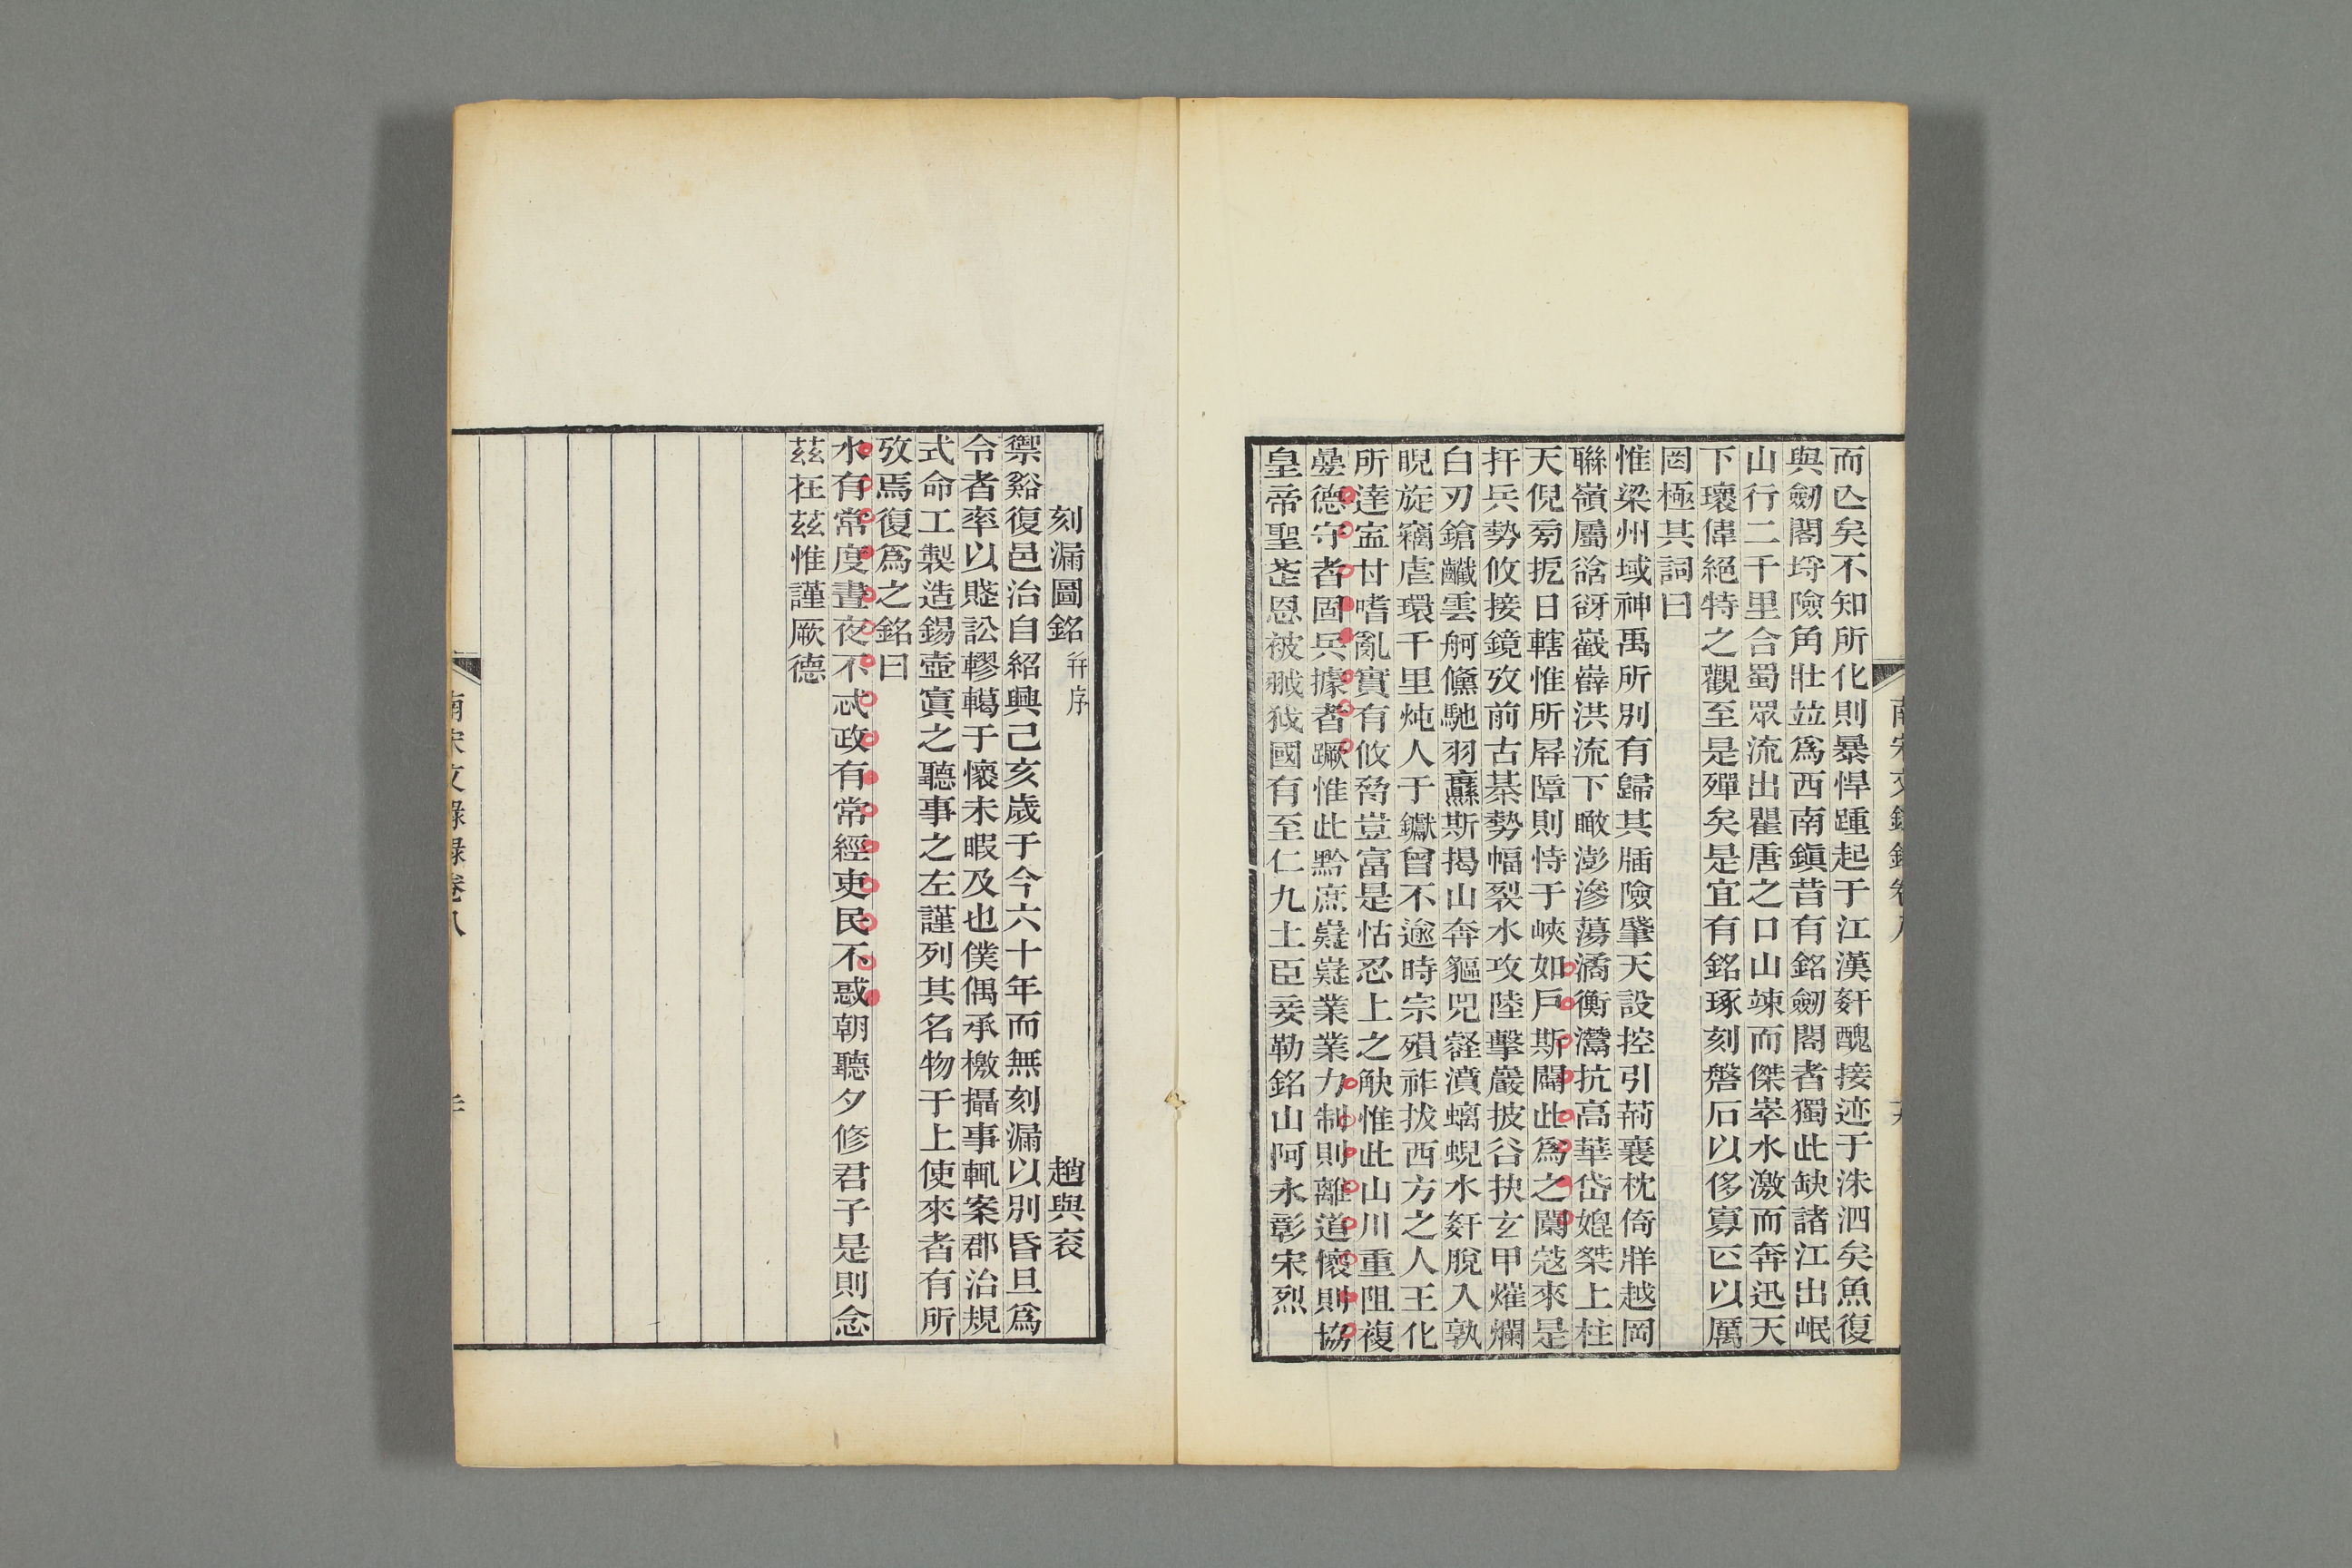 而亾矣不知所化則暴悍踵起于江漢姧醜接迹于洙泗矣魚復
與劒閣埒險角壯竝爲西南鎭昔有銘劒閣者獨此缺諸江出岷
山行二千里合蜀眾流出瞿唐之口山竦而傑崒水激而奔迅天
下瓌偉絕特之觀至是殫矣是宜有銘琢刻磐石以侈寡㠯以厲
罔極其詞曰
惟梁州域神禹所別有歸其牐險肇天設控引荊襄枕倚牂越岡
聯嶺屬谽谺巀嶭洪流下瞰澎滲蕩潏衡灊抗高華岱媲桀上柱
天倪旁扼日轄惟所屛障則恃于峽如戶斯闢此爲之闑𡨥來是
扞兵勢攸接鏡攷前古棊勢幅裂水攻陸擊巖披谷抉玄甲熣爛
白刃鎗䥫雲舸儵馳羽纛斯揭山奔貙兕谿濆螭蜺水姧脫入孰
睨旋竊虐環千里炖人于钀曾不逾時宗殞祚拔西方之人王化
所達寍甘嗜亂實有攸脅豈富是怙忍上之觖惟此山川重阻複
疉德守者固兵據者蹶惟此黔庶嶷嶷業業力制則離道懷則協
皇帝聖𦭵恩被㦸狨國有至仁九土臣妾勒銘山阿永彰宋烈
南宋文錄錄卷八
十九
刻漏圖銘 幷序
趙與袞
禦谿復邑治自紹興己亥歲于今六十年而無刻漏以別昏旦爲
令者率以賤訟轇轕于懷未暇及也僕偶承檄攝事輒案郡治規
式命工製造錫壺寘之聽事之左謹列其名物于上使來者有所
攷焉復爲之銘曰
水有常度晝夜不忒政有常經吏民不惑朝聽夕修君子是則念
茲在茲惟謹厥德
南宋文錄錄卷八